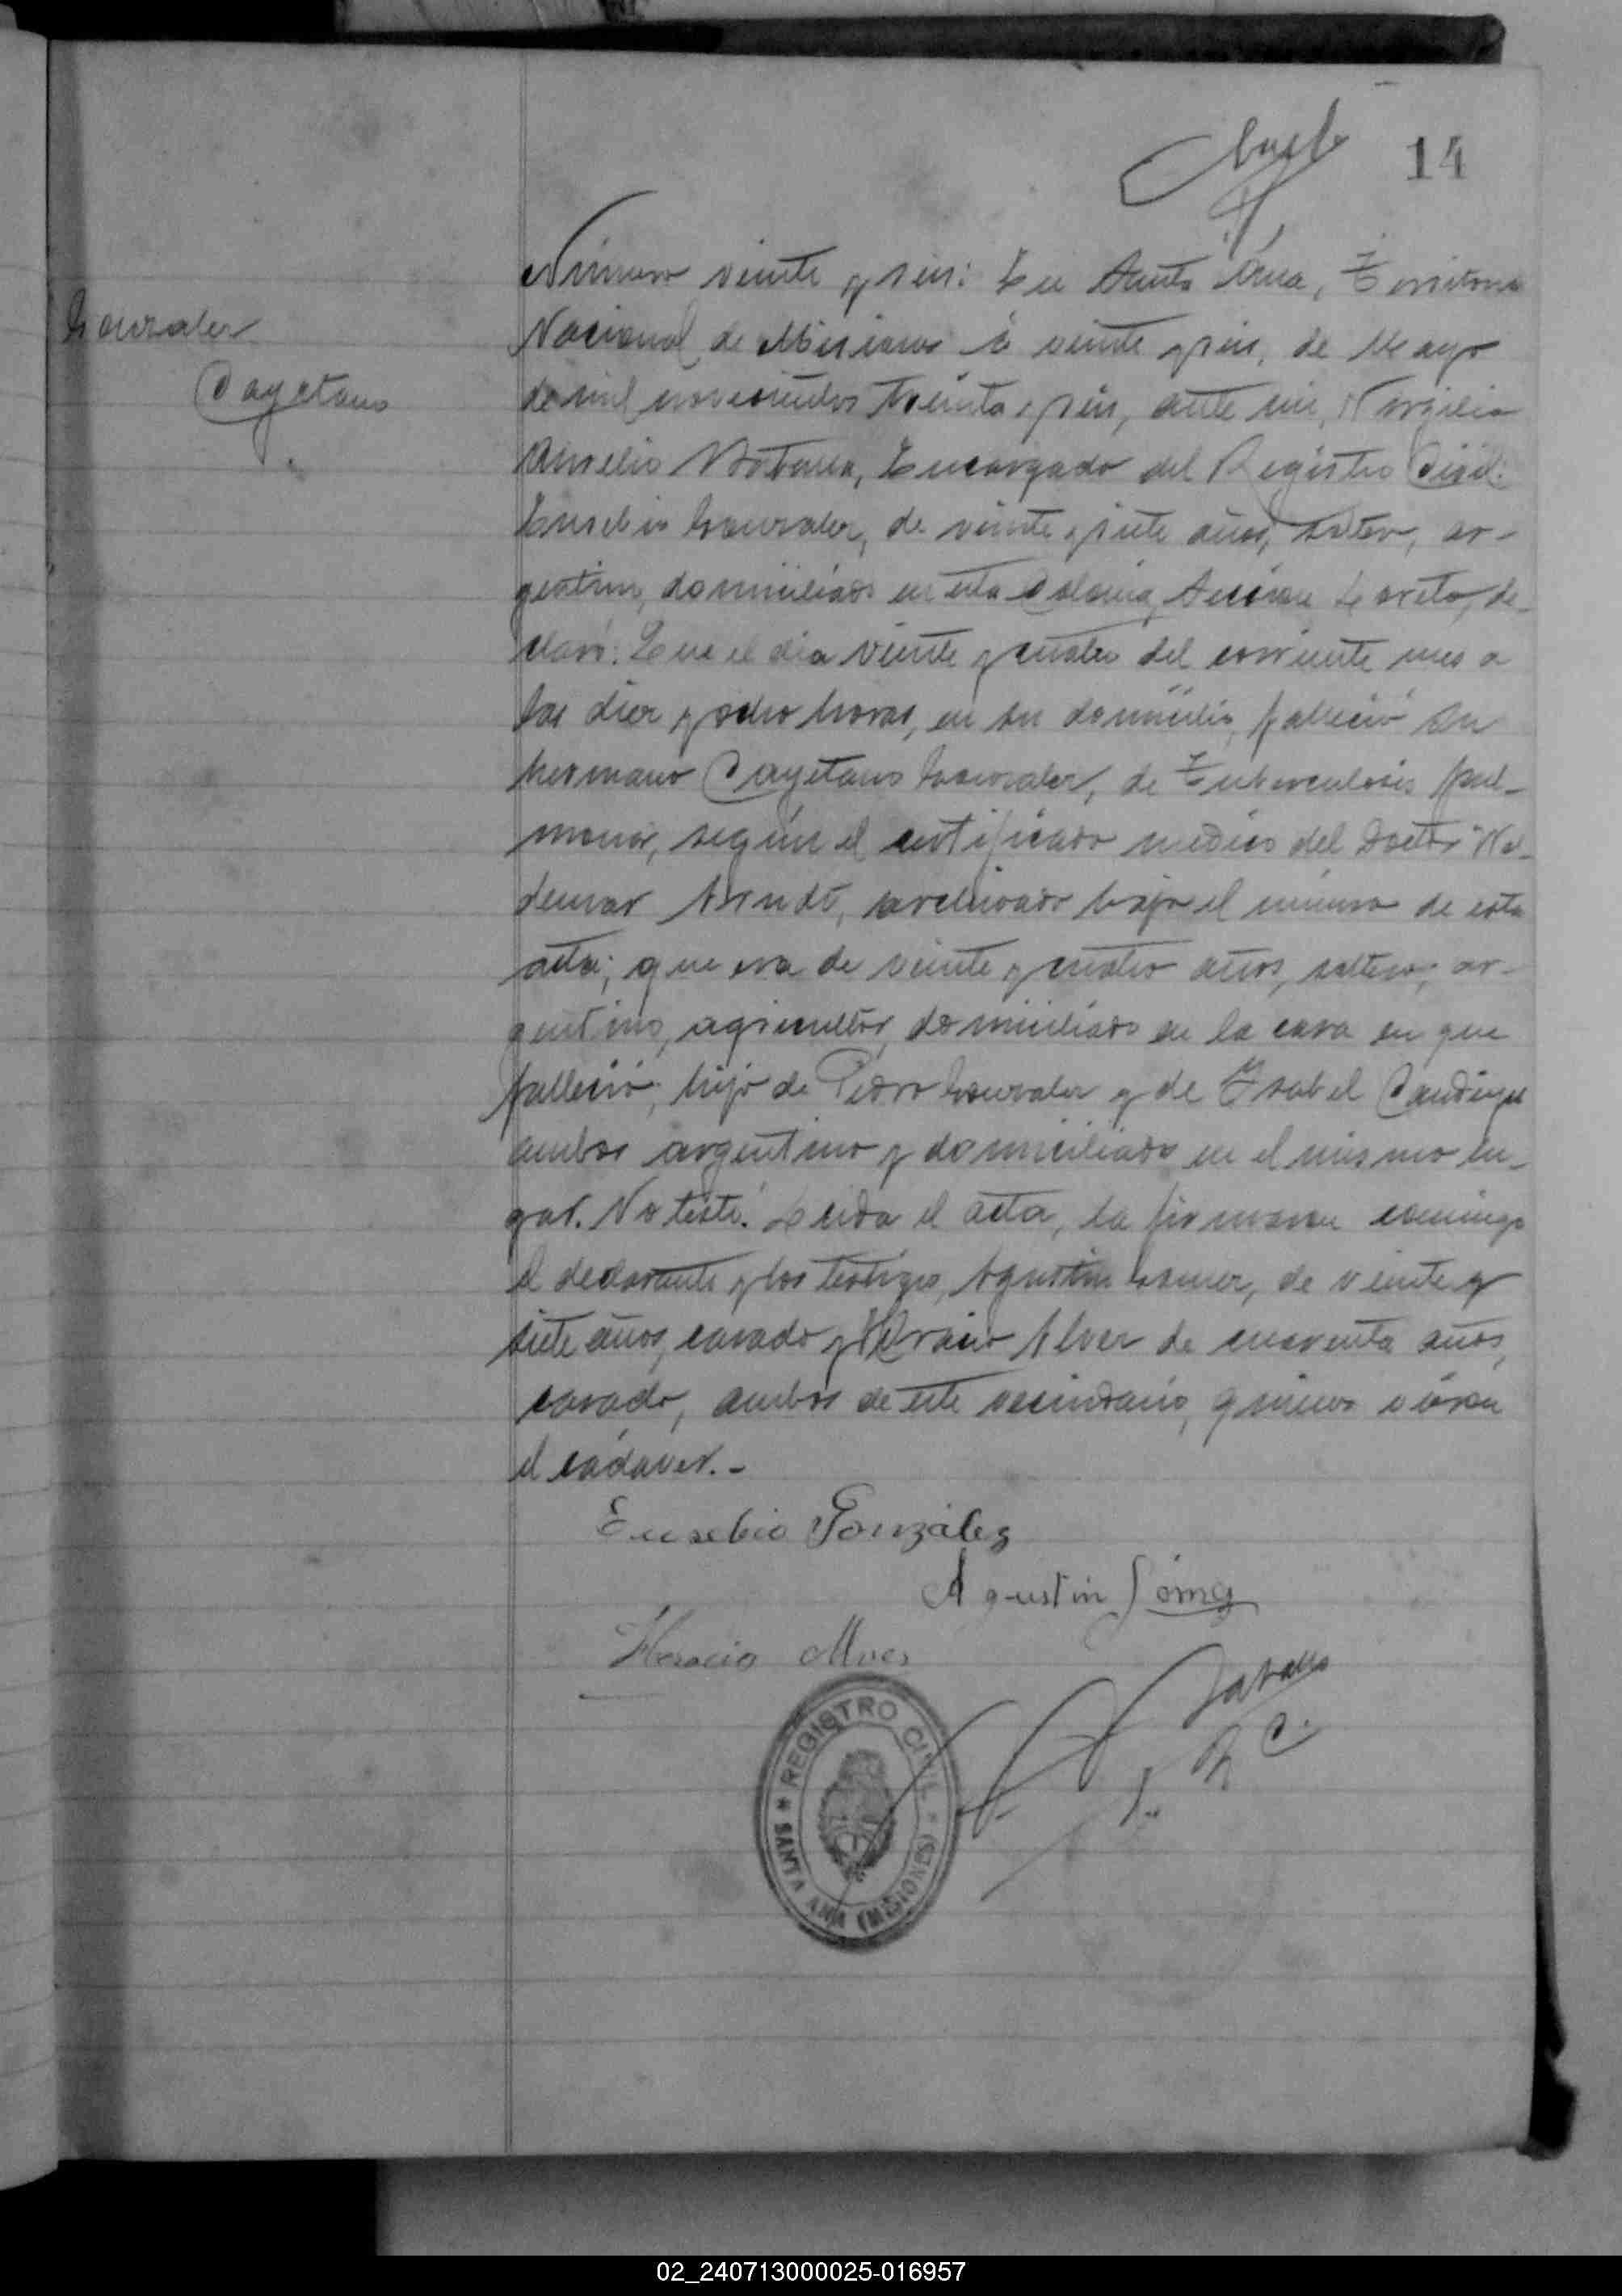 14
Número veinte y seis: En Santa Ana, Territorio
Gonzalez
Nacional de Misiones á veinte y seis, de Mayo
Cayetano
de mil novecientos treinta y seis, ante mi,
Aurelio Encargado del Registro Civil:
Eusebio Gonzalez, de veinte y siete años, soltero, ar-
gentino, domiciliado en esta Colonia, Sección Loreto, de-
claró: Que el día veinte y cuatro del corriente mes a
las diez y ocho horas, en su domicilio, falleció su
hermano Cayetano Gonzalez, de Tuberculosis pul-
monar, según el certificado medico del Doctor Wal-
demar archivado bajo el número de esta
acta; que era de veinte y cuatro años, soltero, ar-
gentino, agricultor, domiciliado en la casa en que
falleció, hijo de Pedro Gonzalez y de Isabel
ambos argentino y domiciliado en el mismo lu-
gar. No testó. Leida el acta, la firmaron conmigo
el declarante y los testigos, Agustin Gomez, de veinte y
siete años, casado y Horacio Alvez de cuarenta años,
casado, ambos de este vecindario, quienes vieron
el cadaver.-
Eusebio González
Agustin Gómez
Horacio Alves
REGISTRO CIVIL
SANTA ANA (MISIONES)
02_240713000025-016957